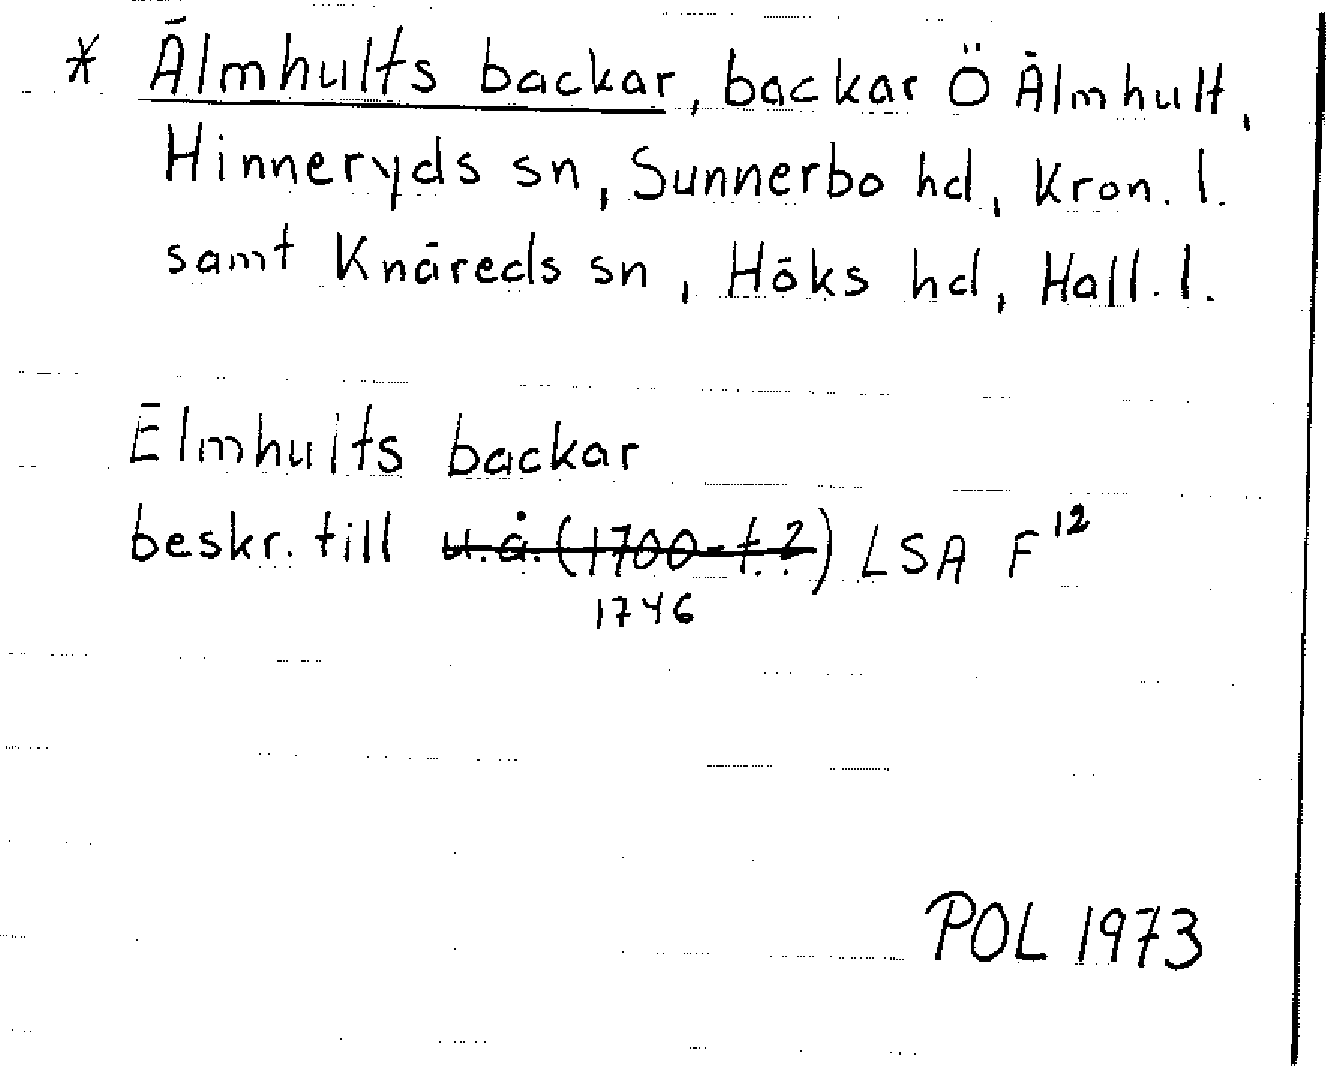 * Älmhults backar, backar Ö Älmhult,
Hinneryds sn, Sunnerbo hd, Kron. l.
samt Knäreds sn, Höks hd, Hall. l.
Elmhults backar
beskr. till u.å. (1700-t.?) LSA F12
1746
POL 1973